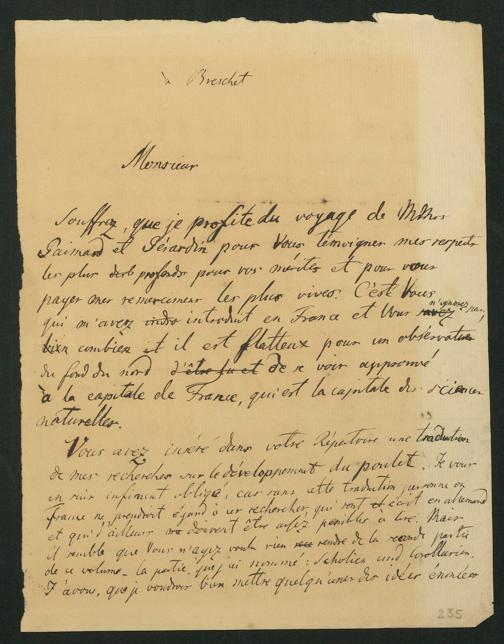 Breschet
Monsieur
Souffrez, que je profite du voyage de MMrs
Gaimard et Gérardin pour Vous temoigner mes respects
les plus profonds pour vos mérites et pour vous
payer mes remerciments les plus vives. C'est Vous
qui m'avez introduit en France et Vous n'ignorez pas,
combien il est flatteux pour un observateur
du fond du nord d'être su et de se voir approuvé
à la capitale de France, qui est la capitale des sciences
naturelles.
Vous avez inséré dans votre Répertoire une traduction
de mes recherches sur le développement du poulet. Je vous
en suis infiment obligé, car sans cette traduction personne en
France ne prendroit égard à ces recherches, qui sont écrit en allemand
et qui d'ailleurs doivent être assez penibles a lire. Mais
il semble que Vous n'ayez voulu rien rendre de la seconde partie
de ce volume – la partie que j'ai nommé: Scholien und Corollarien.
J'avoue, que je voudrois bien mettre quelqu'unes des idées énoncées
235